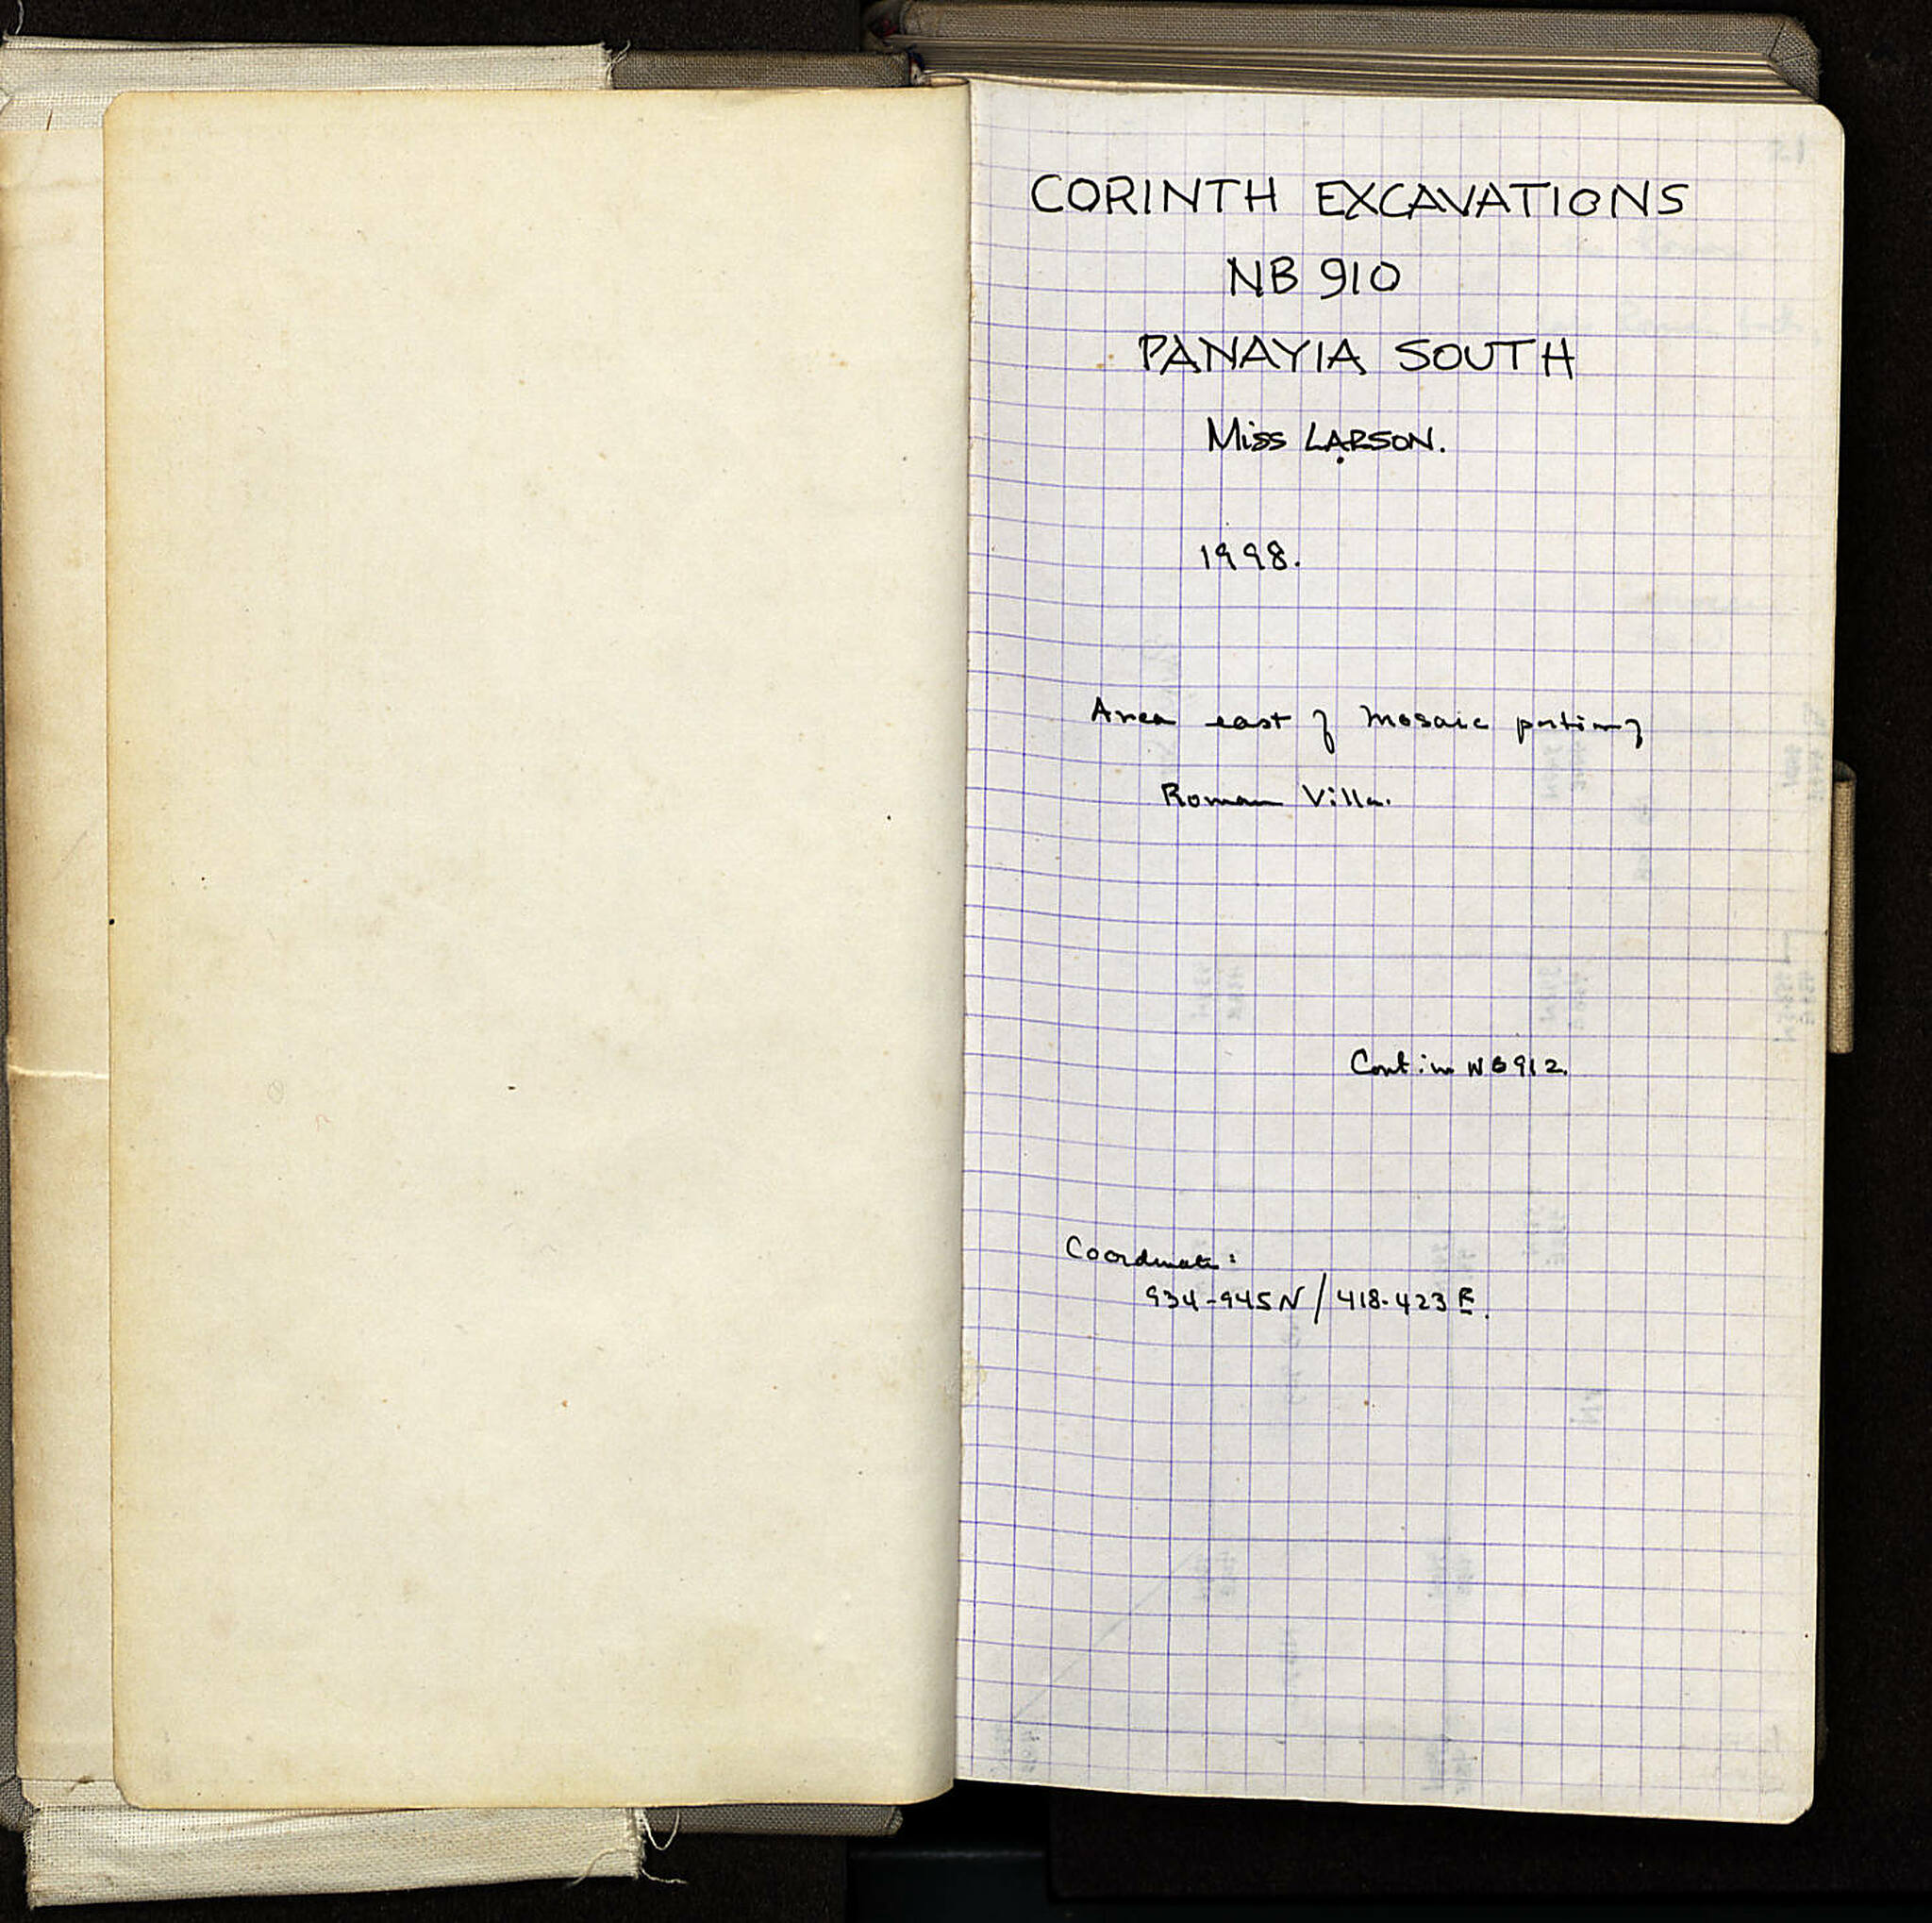 CORINTH EXCAVATIONS
NB 910
PANAYIA SOUTH
Miss LARSON.
1998.
Area east of Mosaic portion of
Roman Villa.
Cont. in NB 912.
Coordinates:
934-945N / 418-423 E.